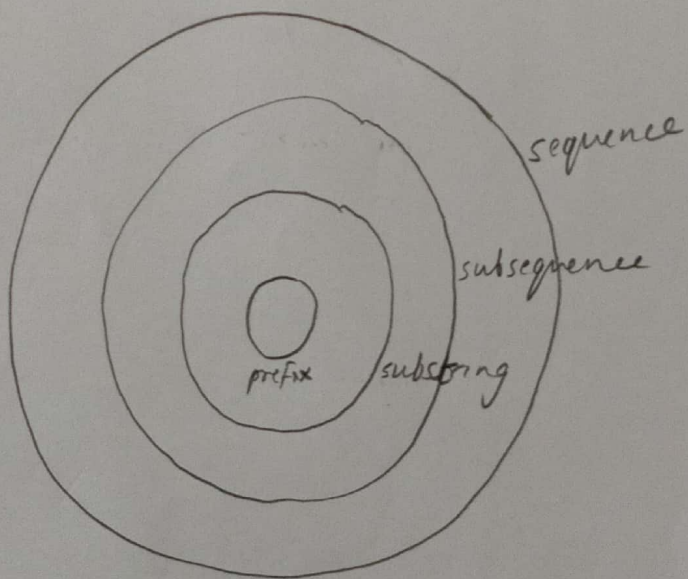 sequence
subsequence
substring
prefix